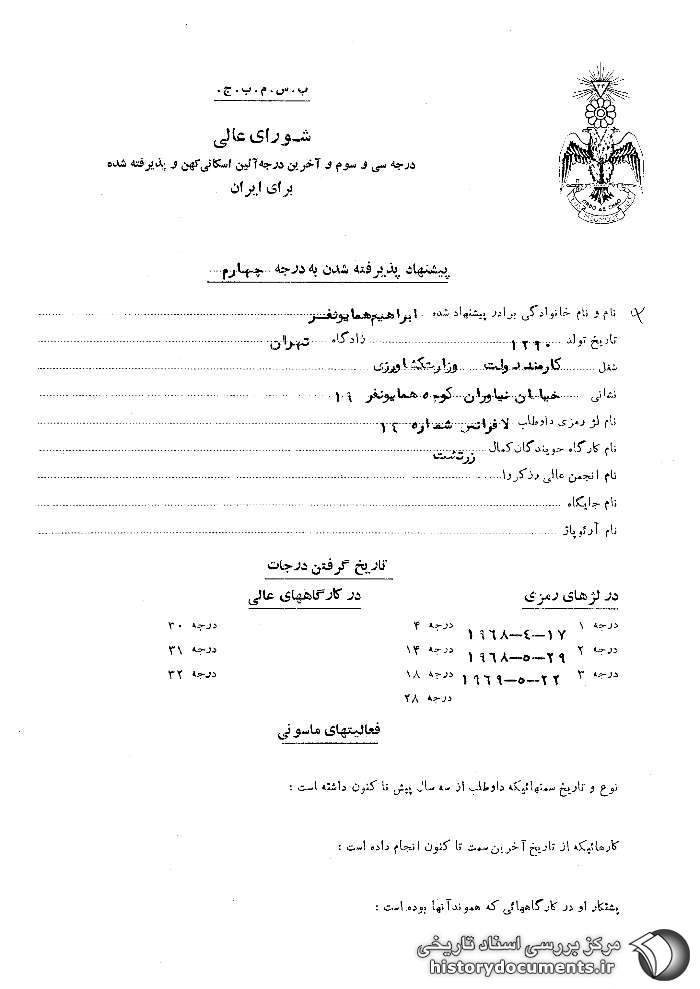 ب . س . م . ب . ج .
شورای عالی
درجه سی و سوم و آخرین درجه آئین اسکاتی کهن و پذیرفته شده
برای ایران
پیشنهاد پذیرفته شدن به درجه چهارم
نام و نام خانوادگی برادر پیشنهاد شده ابراهیم همایونفر
تاریخ تولد ۱۲۹۰ زادگاه تهران
شغل کارمند دولت وزارت کشاورزی
نشانی خیابان نیاوران کوچه همایونفر ۱۹
نام لژ رمزی داوطلب لافرانس شماره ۱٤
نام کارگاه جویندگان کمال زرتشت
نام انجمن عالی رزکروا
نام جایگاه
نام آرئوپاژ
تاریخ گرفتن درجات
در لژهای رمزی در کارگاههای عالی
درجه ۱ ۱۷-٤-۱۹٦۸ درجه ۴ درجه ۳۰
درجه ۲ ۲۹-۵-۱۹٦۸ درجه ۱۴ درجه ۳۱
درجه ۳ ۲۲-۵-۱۹٦۹ درجه ۱۸ درجه ۳۲
درجه ۲۸
فعالیتهای ماسونی
نوع و تاریخ سمتهائیکه داوطلب از سه سال پیش تا کنون داشته است :
کارهائیکه از تاریخ آخرین سمت تا کنون انجام داده است :
پشتکار او در کارگاههائی که هموند آنها بوده است :
مرکز بررسی اسناد تاریخی
historydocuments.ir